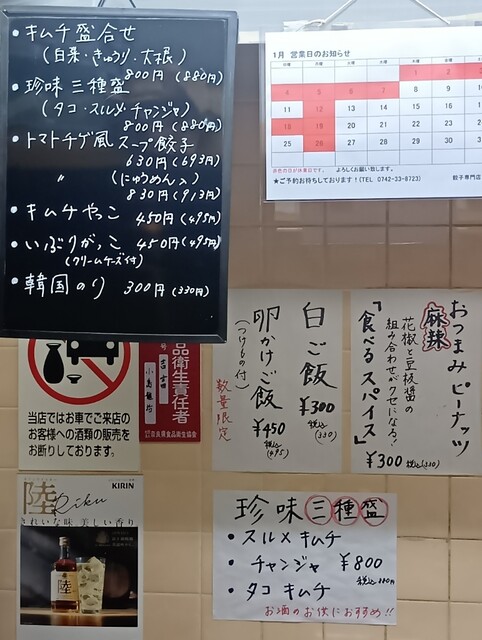 ・キムチ盛合せ
(白菜・きゅうり・大根)
800円(880円)
・珍味三種盛
(タコ・スルメ・チャンジャ)
800円(880円)
・トマトチゲ風スープ餃子
630円(693円)
〃 (にゅうめん入)
830円(913円)
・キムチやっこ 450円(495円)
・いぶりがっこ 450円(495円)
(クリームチーズ付)
・韓国のり 300円(330円)
1月 営業日のお知らせ
1 2
4 5 6 7 8 9
11 12 13 14 15 16
18 19 20 21 22 23
25 26 27 28 29 30
よろしくお願い致します。
★ご予約お待ちしております!(TEL 0742-33-8723)
餃子専門店
当店ではお車でご来店の
お客様への酒類の販売を
お断りしております。
品衛生責任者
白ご飯
¥300
税込
(330)
卵かけご飯
(つけもの付)
¥450
税込
(495)
数量限定
おつまみピーナッツ
麻辣
花椒と豆板醤の
組み合わせがクセになる!
「食べるスパイス」
¥300
税込(330)
陸
Riku
KIRIN
きれいな味、美しい香り
珍味三種盛
・スルメキムチ
・チャンジャ ¥800
税込880円
・タコキムチ
お酒のお供におすすめ!!